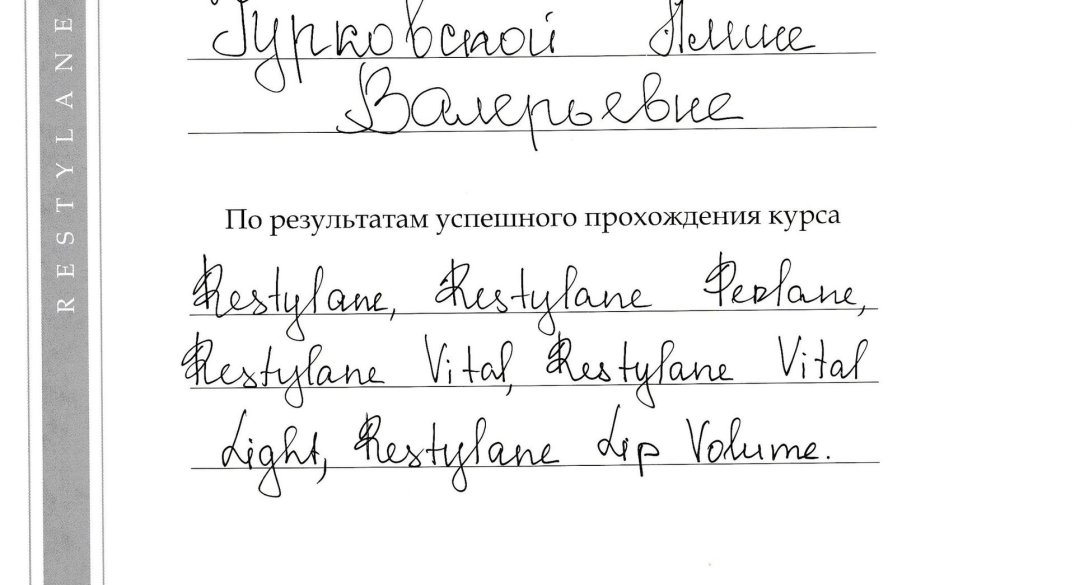 RESTYLANE
Турковской Алине
Валерьевне
По результатам успешного прохождения курса
Restylane, Restylane Perlane,
Restylane Vital, Restylane Vital
Light, Restylane Lip Volume.